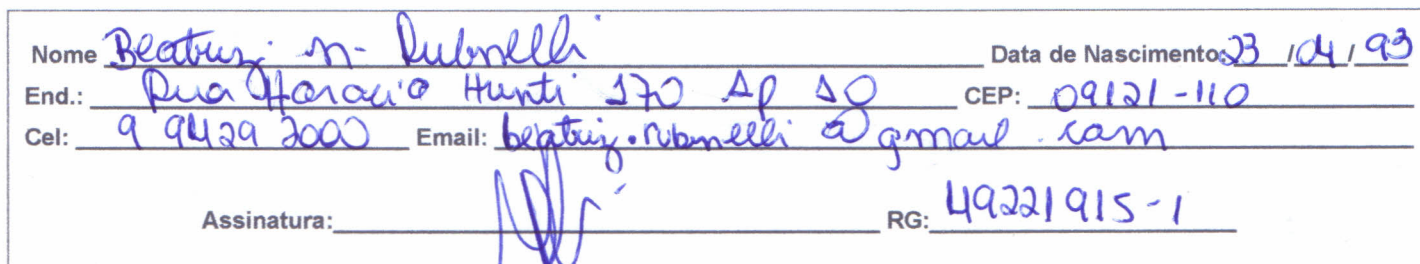 Nome Beatriz n- Rubinelli Data de Nascimento: 23 / 04 / 93
End.: Rua Horacio 170 Ap 10 CEP: 09121-110
Cel: 9 9429 2000 Email: beatriz.rubinelli@gmail.com
Assinatura: RG: 49221915-1